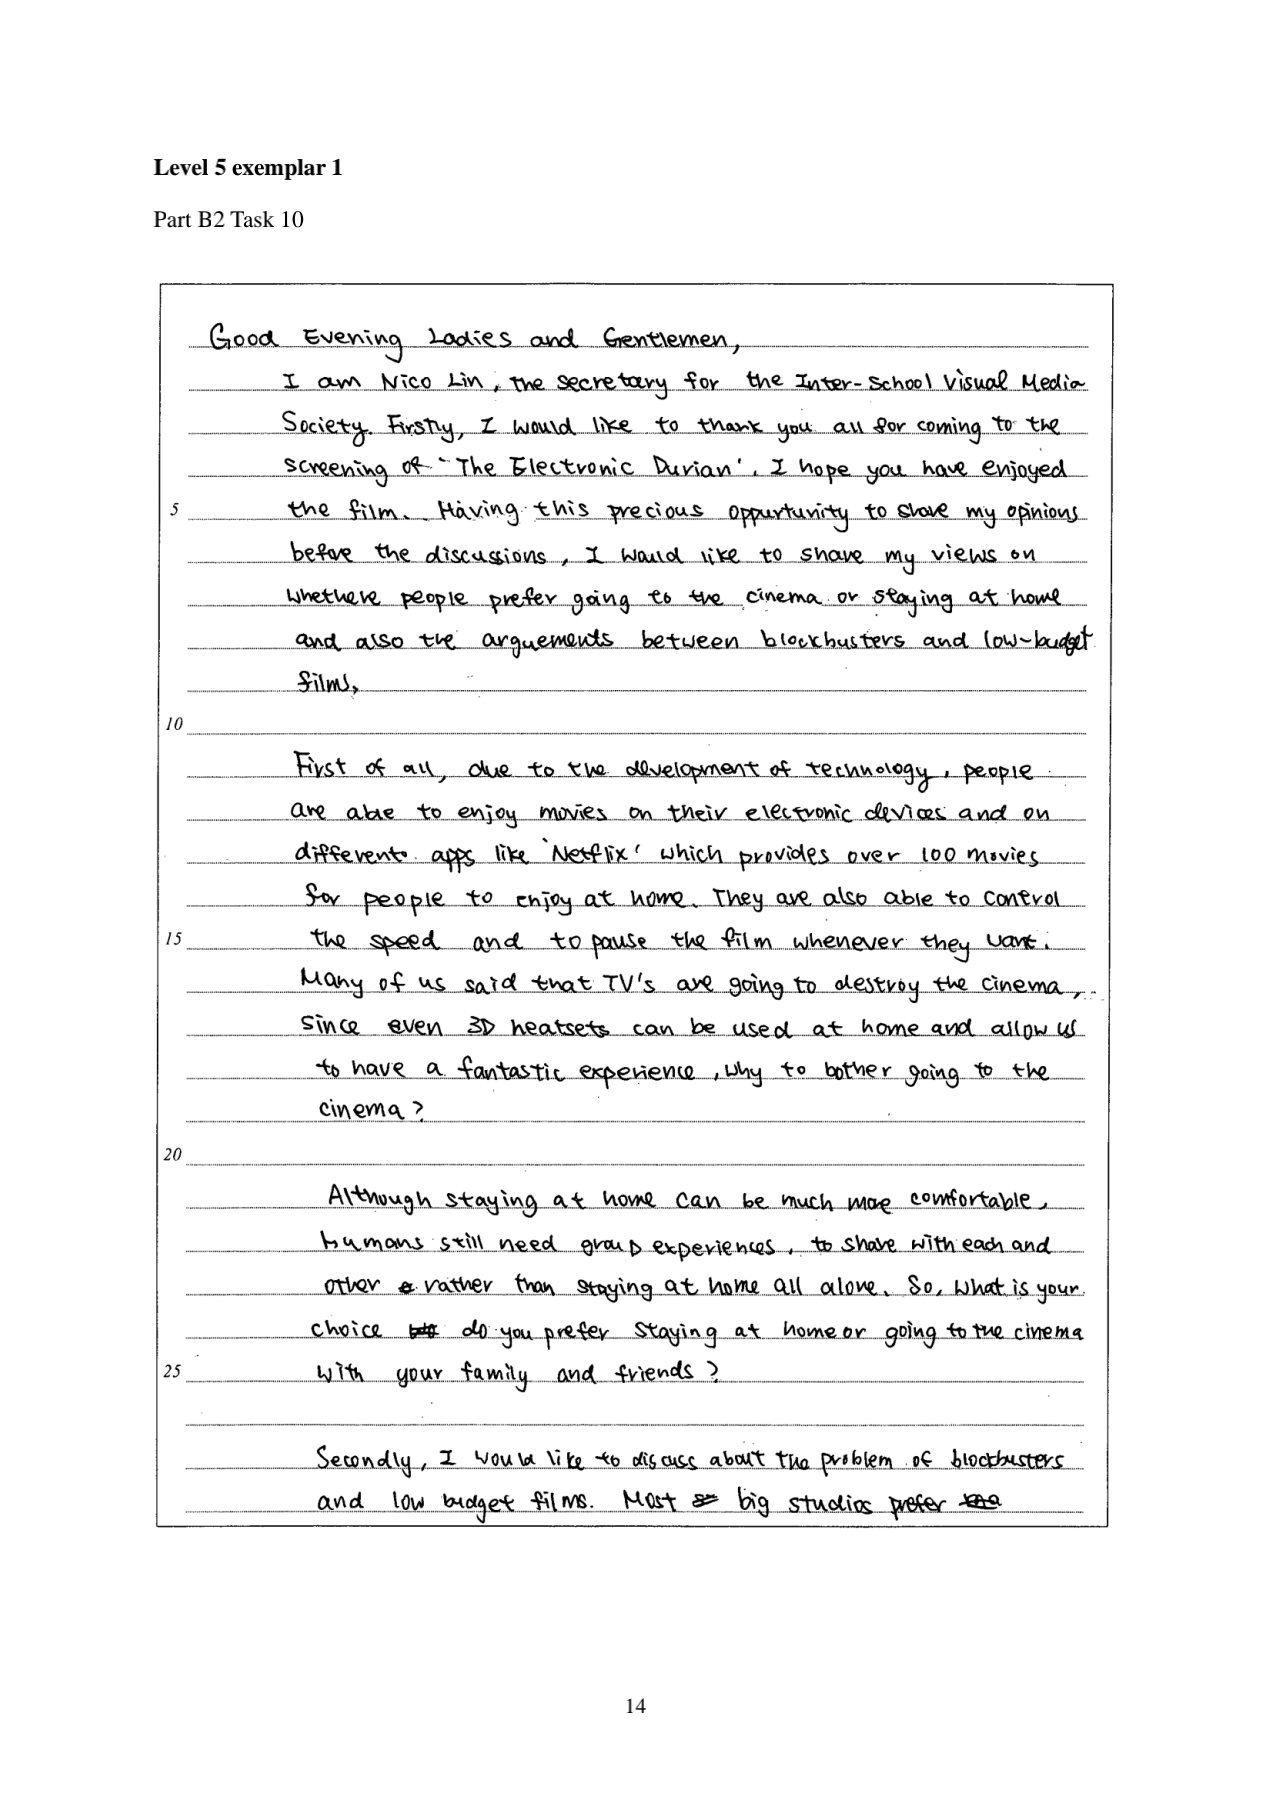 Level 5 exemplar 1
Part B2 Task 10
Good Evening Ladies and Gentlemen,
I am Nico Lin, the secretary for the Inter-School Visual Media
Society. Firstly, I would like to thank you all for coming to the
screening of 'The Electronic Durian'. I hope you have enjoyed
5 the film. Having this precious oppurtunity to share my opinions
before the discussions, I would like to share my views on
whethere people prefer going to the cinema or staying at home
and also the arguements between blockbusters and low-budget
films,
10
First of all, due to the development of technology, people
are able to enjoy movies on their electronic devices and on
different apps like 'Netflix' which provides over 100 movies
for people to enjoy at home. They are also able to control
15 the speed and to pause the film whenever they want.
Many of us said that TV's are going to destroy the cinema,
since even 3D heatsets can be used at home and allow us
to have a fantastic experience, why to bother going to the
cinema?
20
Although staying at home can be much more comfortable,
humans still need group experiences, to share with each and
other rather than staying at home all alone. So, what is your
choice do you prefer staying at home or going to the cinema
25 with your family and friends?
Secondly, I would like to discuss about the problem of blockbusters
and low budget films. Most big studios prefer
14